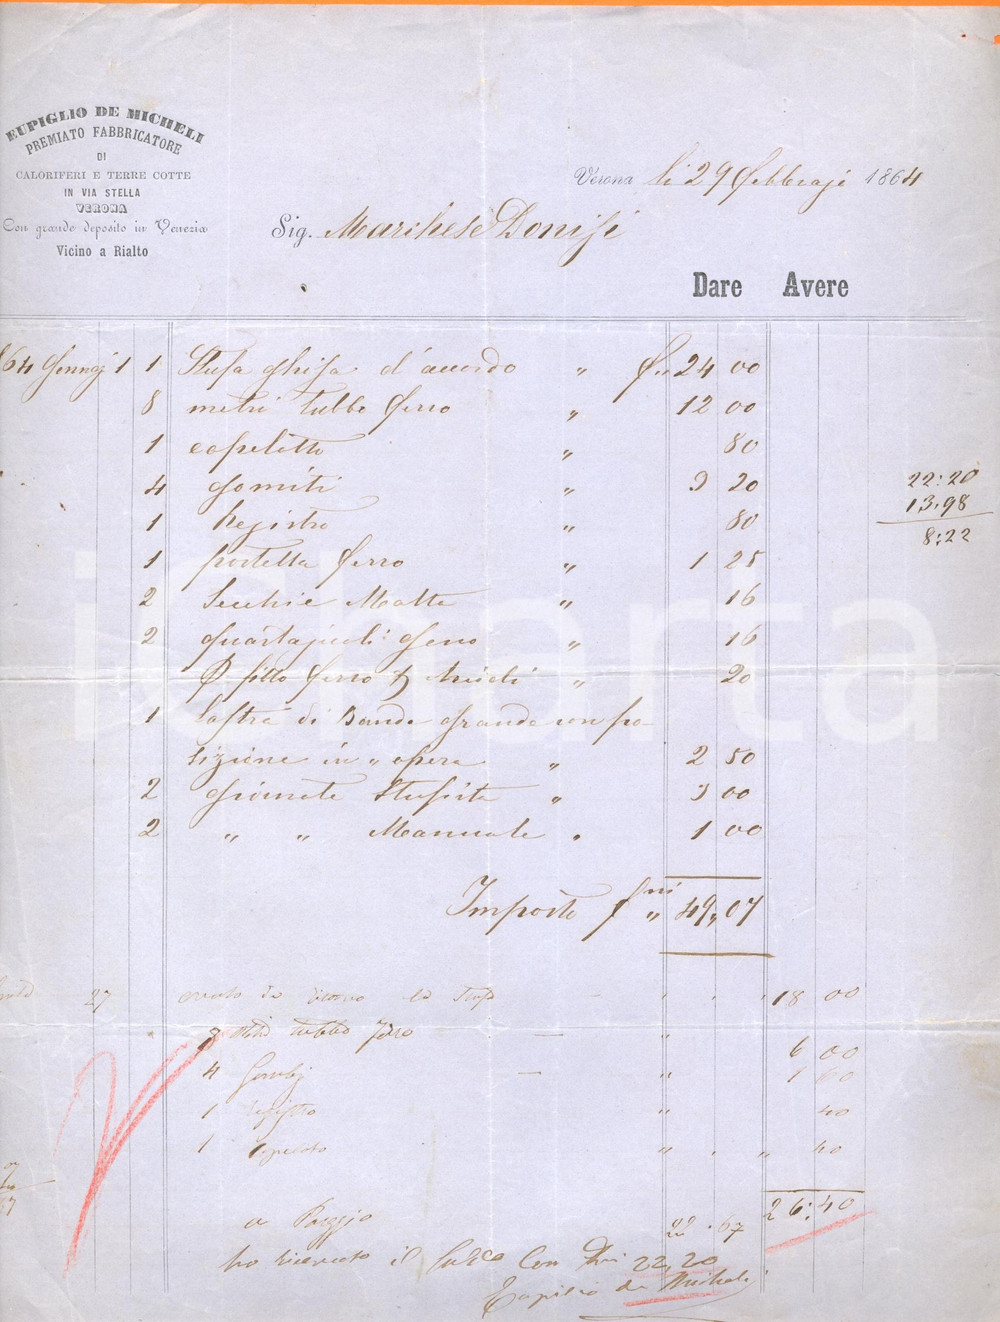 EUPIGLIO DE MICHELI
PREMIATO FABBRICATORE
DI
CALORIFERI E TERRE COTTE
IN VIA STELLA
VERONA
Con grande deposito in Venezia
Vicino a Rialto
Verona li 29 Febbrajo 1864
Sig. Marchese Donisi
Dare Avere
864 Gennaj 1 1 Stufa ghisa d'accordo " f. " 24 00
8 metri tubbo ferro " 12 00
1 capeletto " 80
4 gomiti " 3 20
1 Registro " 80
1 portella ferro " 1 25
2 Secchie Malta " 16
2 quartaroli " 16
filo ferro " 20
1 lastra di Banda grande con po-
sizione in " opera " 2 50
2 giornate Stufista " 3 00
2 " " Manuale " 1 00
Importo fni " 49,07
22:20
13:98
8:22
27 18 00
8 metri tubbo ferro — " 6 00
4 — " 1 60
1 registro " 40
1 " " 40
26:40
22.67
ho ricevuto il saldo con 22,20
Eupilio de Micheli
iCharta